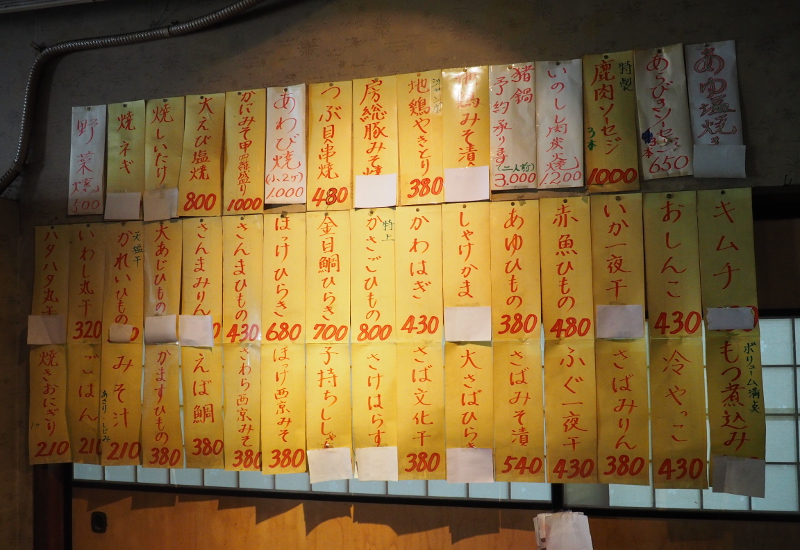 あゆ塩焼き
あらびきソーセージ 3本 650
特製 鹿肉ソーセージ 3本 1000
いのしし肉炭火焼 1,200
猪鍋 予約承り〼 (二人前) 3,000
みそ漬
地鶏やきとり 380
房総豚みそ焼
つぶ貝串焼 480
あわび焼 (小・2ヶ) 1,000
かにみそ甲羅盛り 1000
大えび塩焼 800
焼しいたけ
焼ネギ
野菜焼 500
キムチ
おしんこ 430
いか一夜干
赤魚ひもの 480
あゆひもの 380
しゃけかま
かわはぎ 430
特上 かさごひもの 800
金目鯛ひらき 700
ほっけひらき 680
さんまひもの 430
さんまみりん
大あじひもの
天塩干 かれいひもの
いわし丸干 320
ハタハタ丸干
ボリューム満点 もつ煮込み
冷やっこ 430
さばみりん 380
ふぐ一夜干 430
さばみそ漬 540
大さばひらき
さば文化干 380
さけはらす
子持ちししゃも
ほっけ西京みそ 380
さわら西京みそ 380
えぼ鯛 380
かますひもの 380
あさり・しじみ みそ汁 210
ごはん 210
焼きおにぎり 210